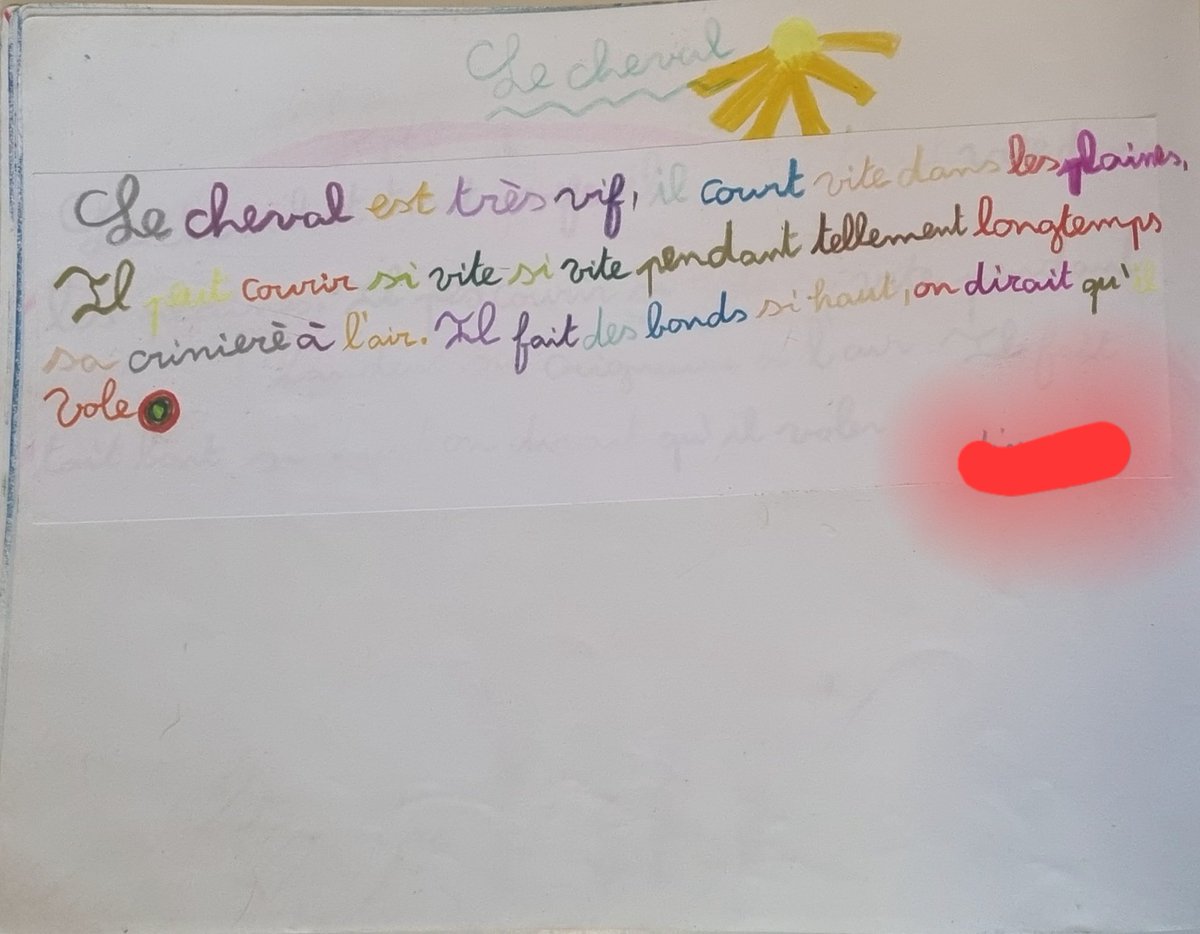 Le cheval
Le cheval est très vif, il court vite dans les plaines,
Il peut courir si vite si vite pendant tellement longtemps
sa crinierè à l'air. Il fait des bonds si haut, on dirait qu'il
vole